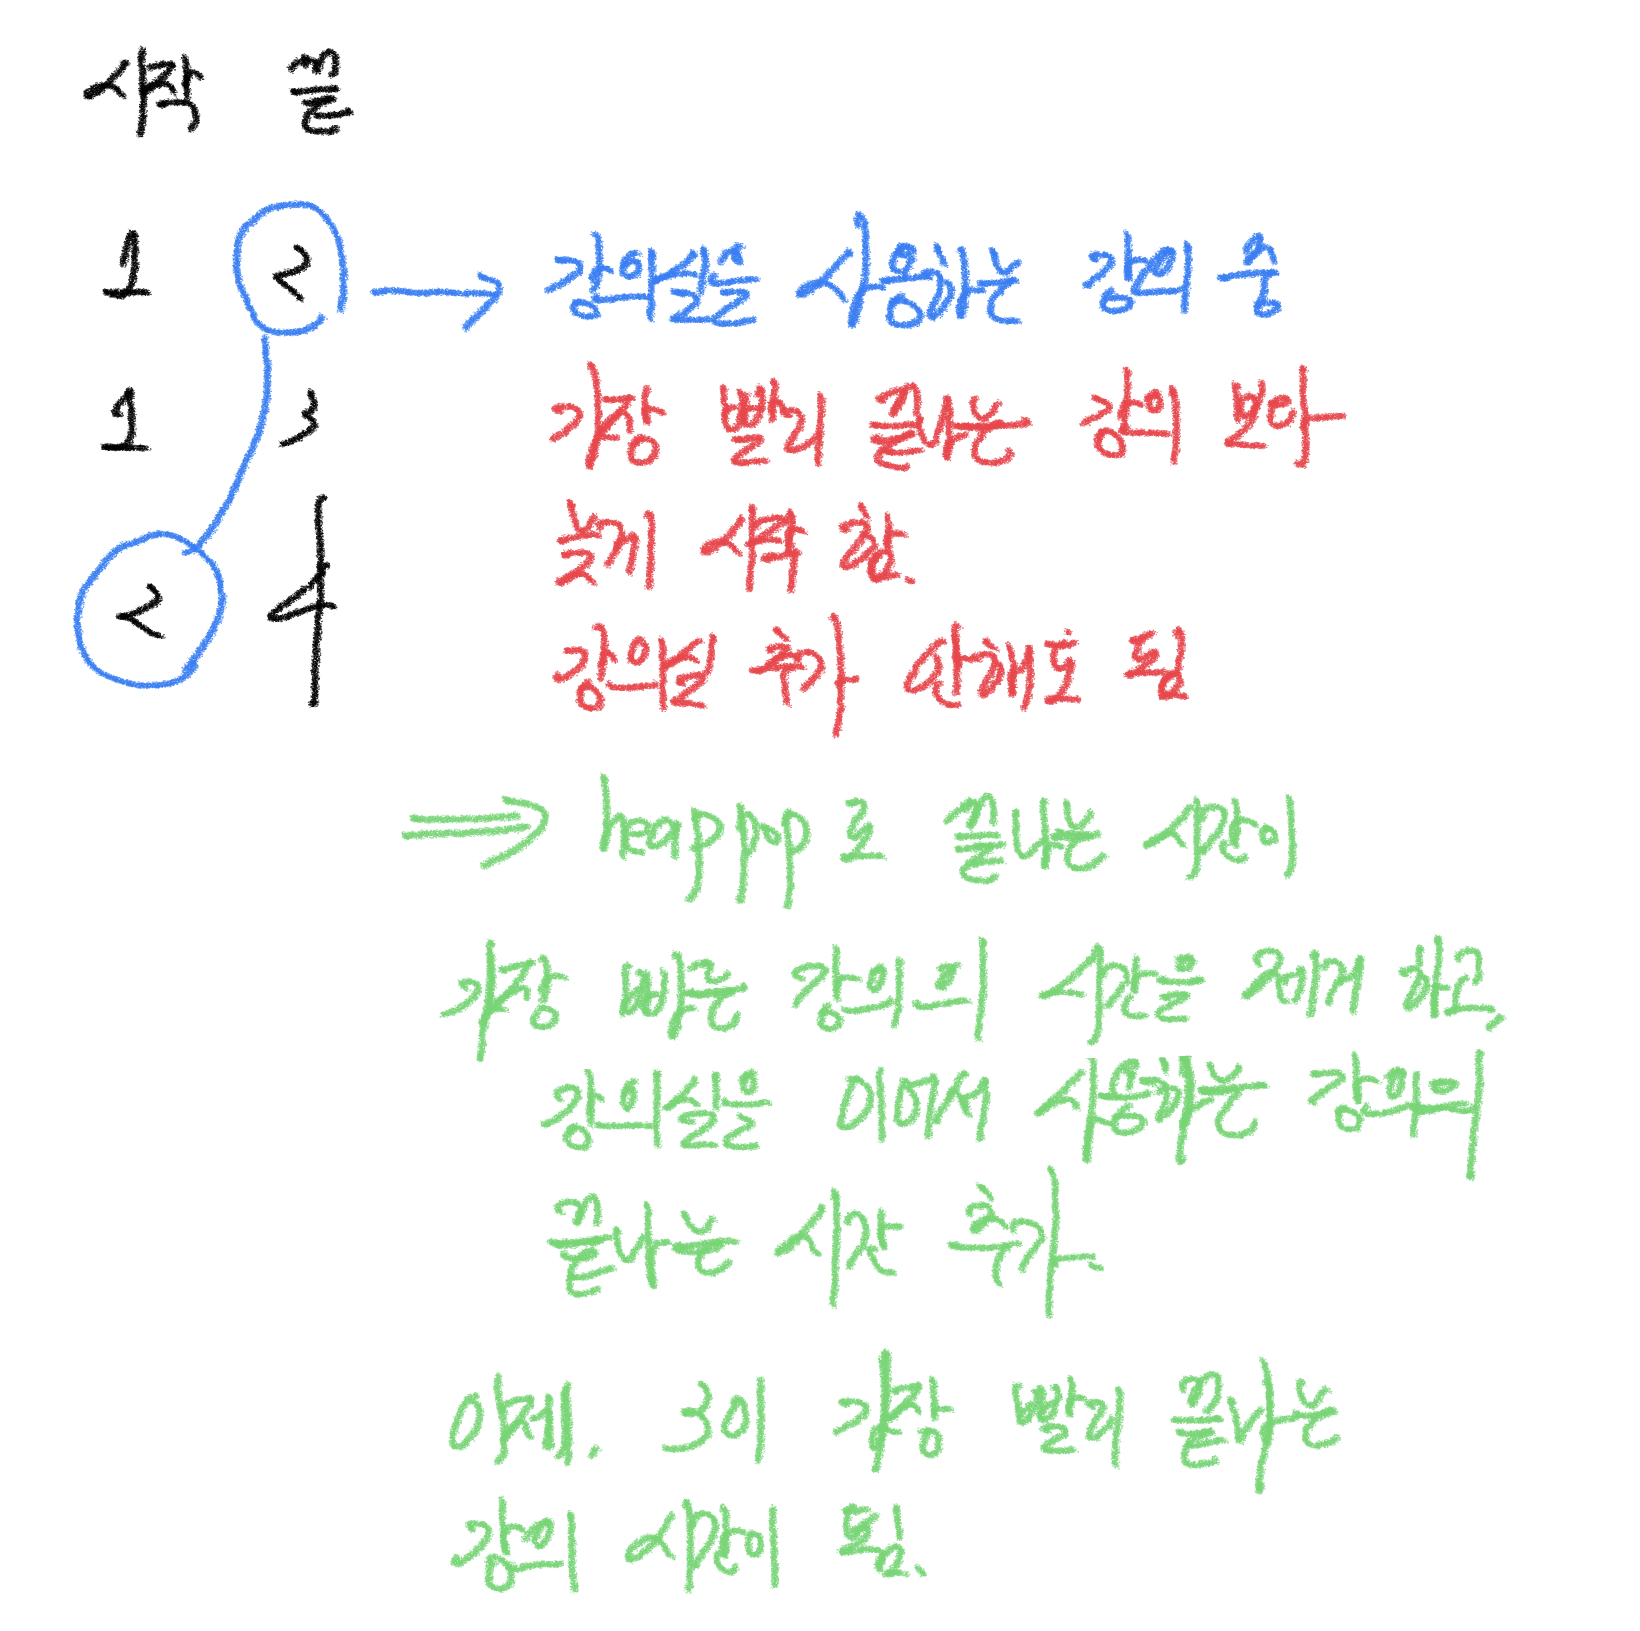 시작 끝
1 2 → 강의실을 사용하는 강의 중
1 3 가장 빨리 끝나는 강의 보다
2 4 늦게 시작 함.
강의실 추가 안해도 됨
⇒ heappop로 끝나는 시간이
가장 빠른 강의의 시간을 제거 하고,
강의실을 이어서 사용하는 강의의
끝나는 시간 추가.
이제. 3이 가장 빨리 끝나는
강의 시간이 됨.